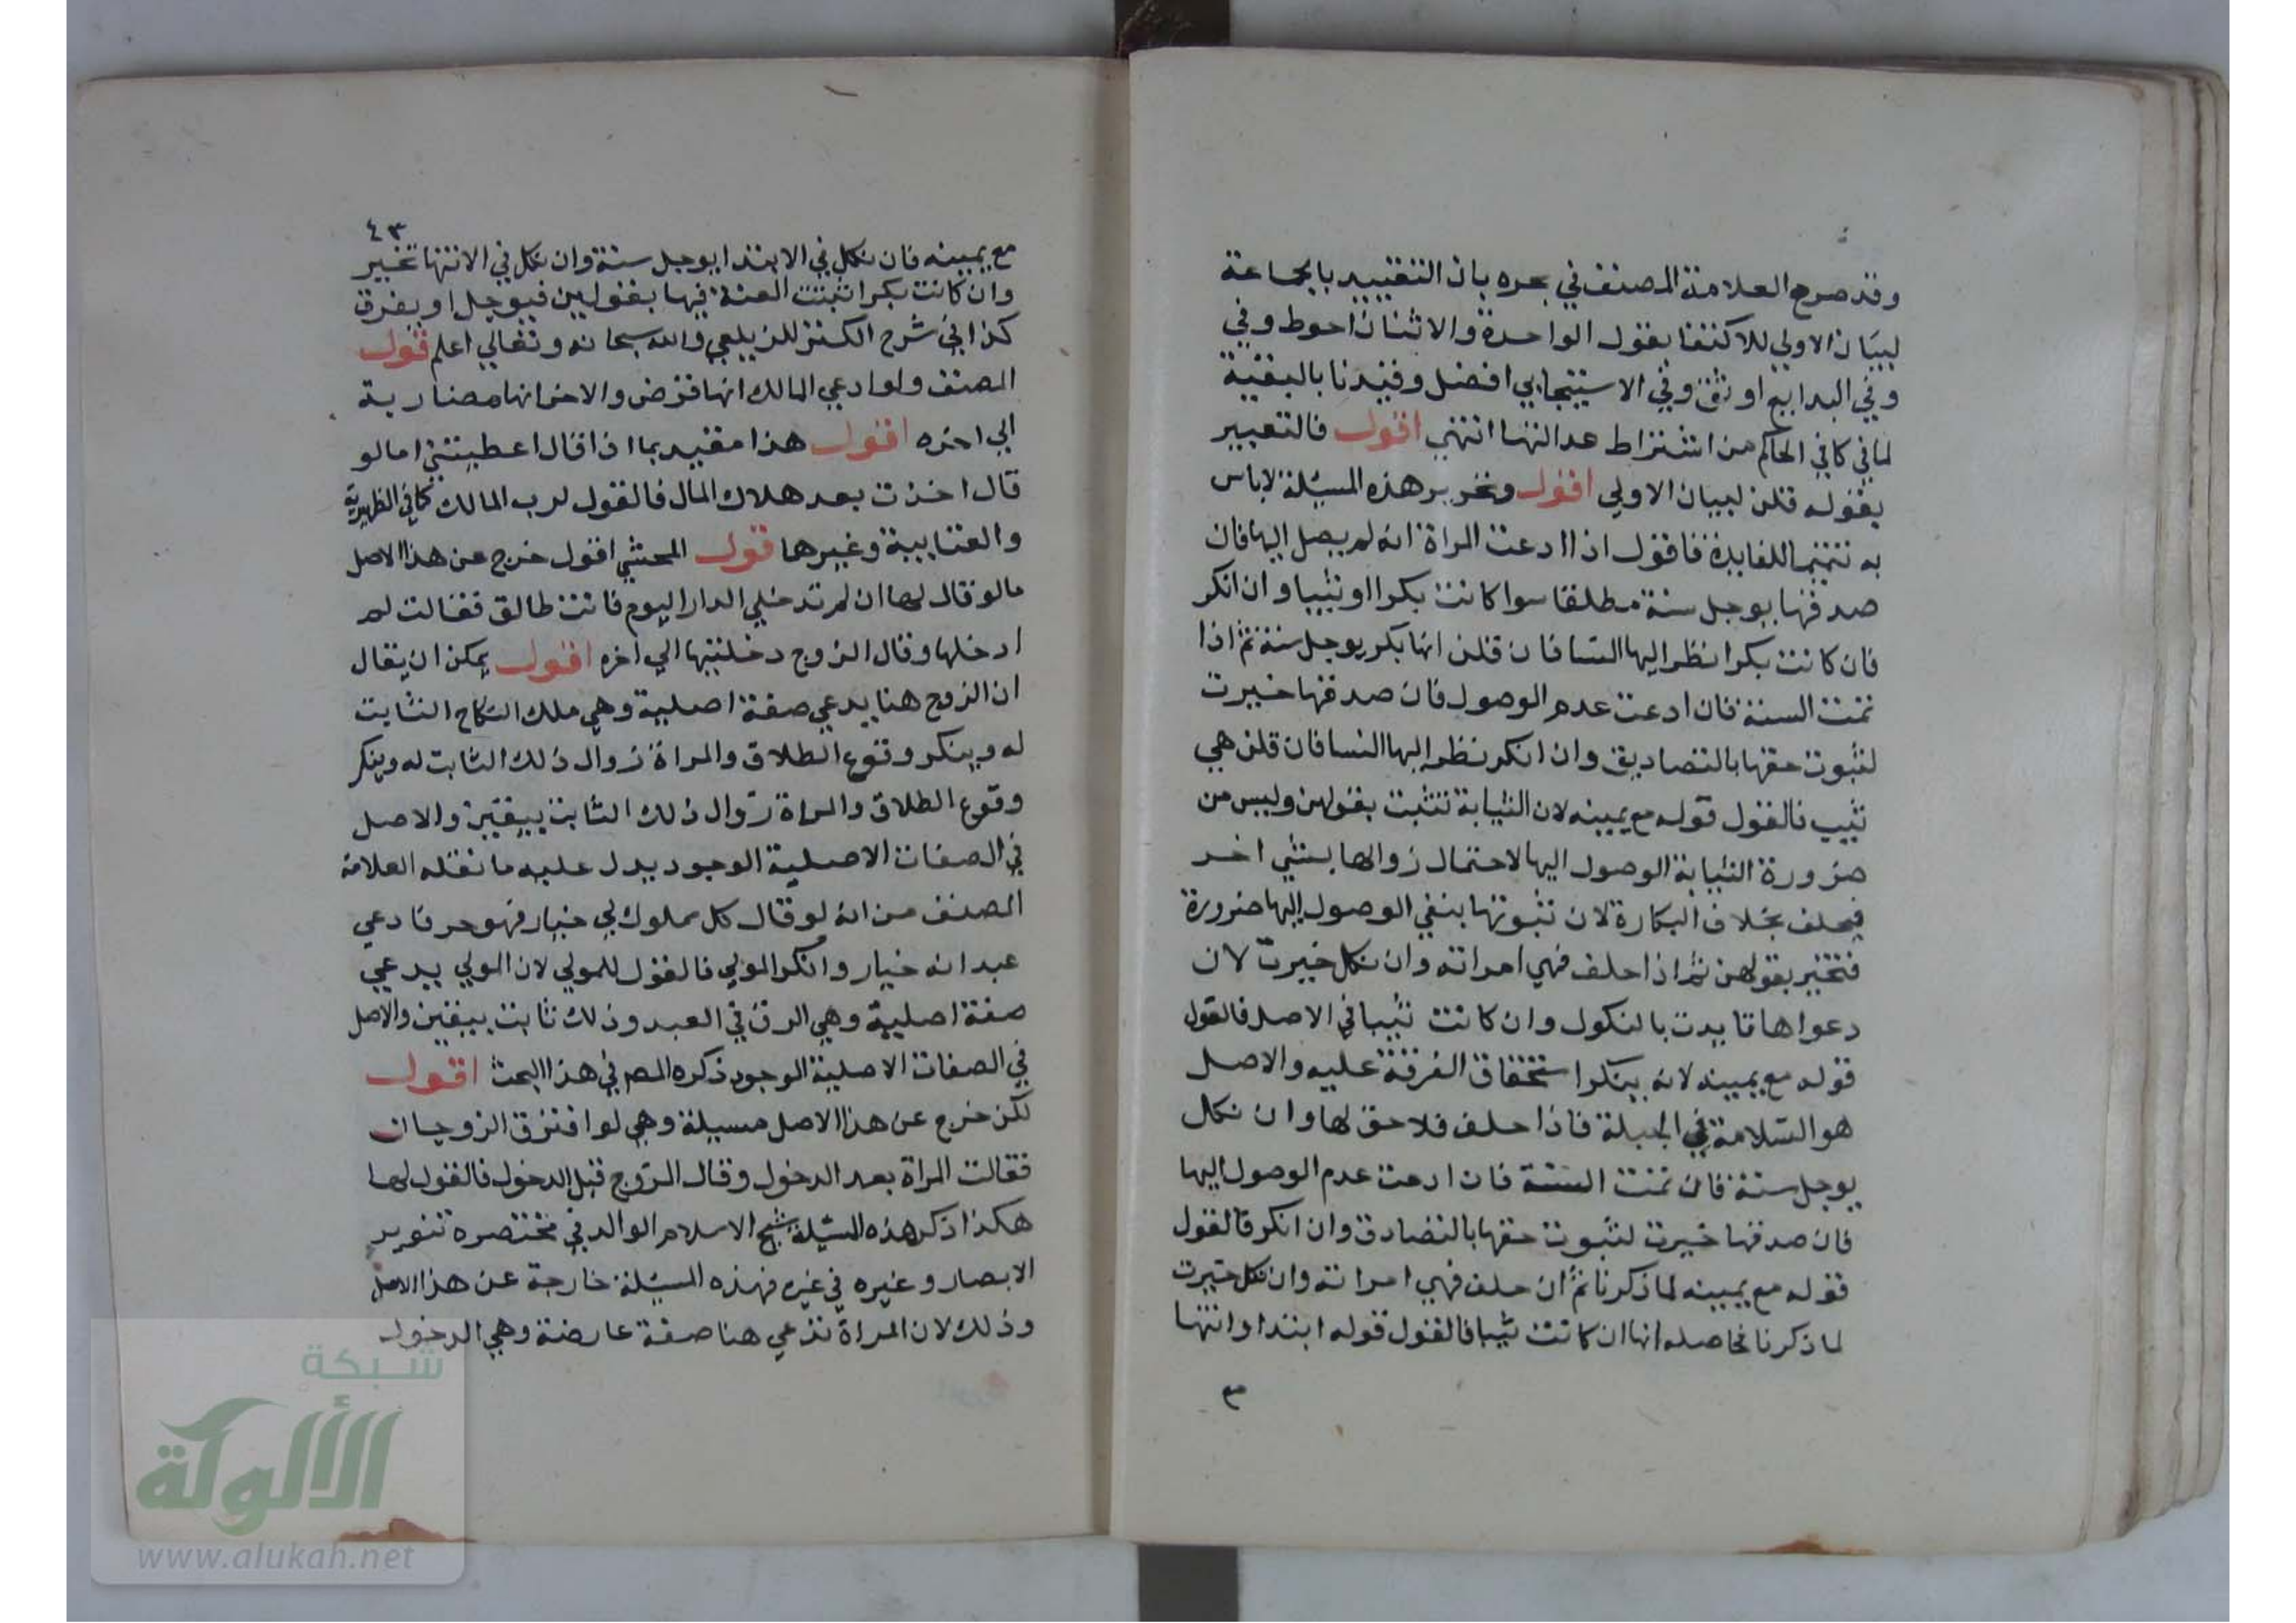 وقد صرح العلامة المصنف في بحره بان التقييد بالجماعة
لبيان الاولي للاكتفا بقول الواحدة والاثنان احوط وفي
وفي البدايع اوثق وفي الاسبيجابي افضل وقيدنا بالبقية
لما في كافي الحاكم من اشتراط عدالتها انتهي اقول فالتعبير
بقوله قلن لبيان الاولي اقول وتحرير هذه المسئلة لاباس
به تتميما للفايدة فاقول اذا ادعت المراة انه لم يصل اليها فان
صدقها يوجل سنة مطلقا سوا كانت بكرا او ثيبا وان انكر
فان كانت بكرا نظر اليها النسا فان قلن انها بكر يوجل سنة ثم اذا
تمت السنة فان ادعت عدم الوصول فان صدقها خيرت
لثبوت حقها بالتصاديق وان انكر نظر اليها النسا فان قلن هي
ثيب فالقول قوله مع يمينه لان الثيابة تثبت بقولهن وليس من
ضرورة الثيابة الوصول اليها لاحتمال زوالها بشي اخر
فيحلف بخلاف البكارة لان ثبوتها ينفي الوصول اليها ضرورة
فتخير بقولهن ثم اذا حلف فهي امراته وان نكل خيرت لان
دعواها تايدت بالنكول وان كانت ثيبا في الاصل فالقول
قوله مع يمينه لانه ينكر استحقاق الفرقة عليه والاصل
هو السلامة في الجبلة فاذا حلف فلا حق لها وان نكل
يوجل سنة فان تمت السنة فان ادعت عدم الوصول اليها
فان صدقها خيرت لثبوت حقها بالتصادق وان انكر فالقول
قوله مع يمينه لما ذكرنا ثم ان حلف فهي امراته وان نكل خيرت
لما ذكرنا فحاصله انها ان كانت ثيبا فالقول قوله ابتدا وانتها
٤٣
مع يمينه فان نكل في الابتدا يوجل سنة وان نكل في الانتها تخير
وان كانت بكرا ثبتت العنة فيها بقولهن فيوجل او يفرق
كذا في شرح الكنز للزيلعي والله سبحانه وتعالي اعلم قول
المصنف ولو ادعي المالك انها قرض والاخر انها مضاربة
الي اخره اقول هذا مقيد بما اذا قال اعطيتني اما لو
قال اخذت بعد هلاك المال فالقول لرب المالك كما في الظهيرية
والعتابية وغيرها قول المحشي اقول خرج عن هذا الاصل
مالو قال لها ان لم تدخلي الدار اليوم فانت طالق فقالت لم
ادخلها وقال الزوج دخلتيها الي اخره اقول يمكن ان يقال
ان الزوج هنا يدعي صفة اصلية وهي ملك النكاح الثابت
له وينكر وقوع الطلاق والمراة زوال ذلك الثابت له وينكر
وقوع الطلاق والمراة زوال ذلك الثابت بيقين والاصل
في الصفات الاصلية الوجود يدل عليه ما نقله العلامة
المصنف من انه لو قال كل مملوك لي خباز فهو حر فادعي
عبد انه خباز وانكر المولي فالقول للمولي لان المولي يدعي
صفة اصلية وهي الرق في العبد وذلك ثابت بيقين والاصل
في الصفات الاصلية الوجود ذكره المص في هذا البحث اقول
لكن خرج عن هذا الاصل مسيلة وهي لو افترق الزوجان
فقالت المراة بعد الدخول وقال الزوج قبل الدخول فالقول لها
هكذا ذكر هذه المسئلة شيخ الاسلام الوالد في مختصره تنوير
الابصار وغيره في غيره فهذه المسئلة خارجة عن هذا الاصل
وذلك لان المراة تدعي هنا صفة عارضة وهي الدخول
شبكة
الألوكة
www.alukah.net